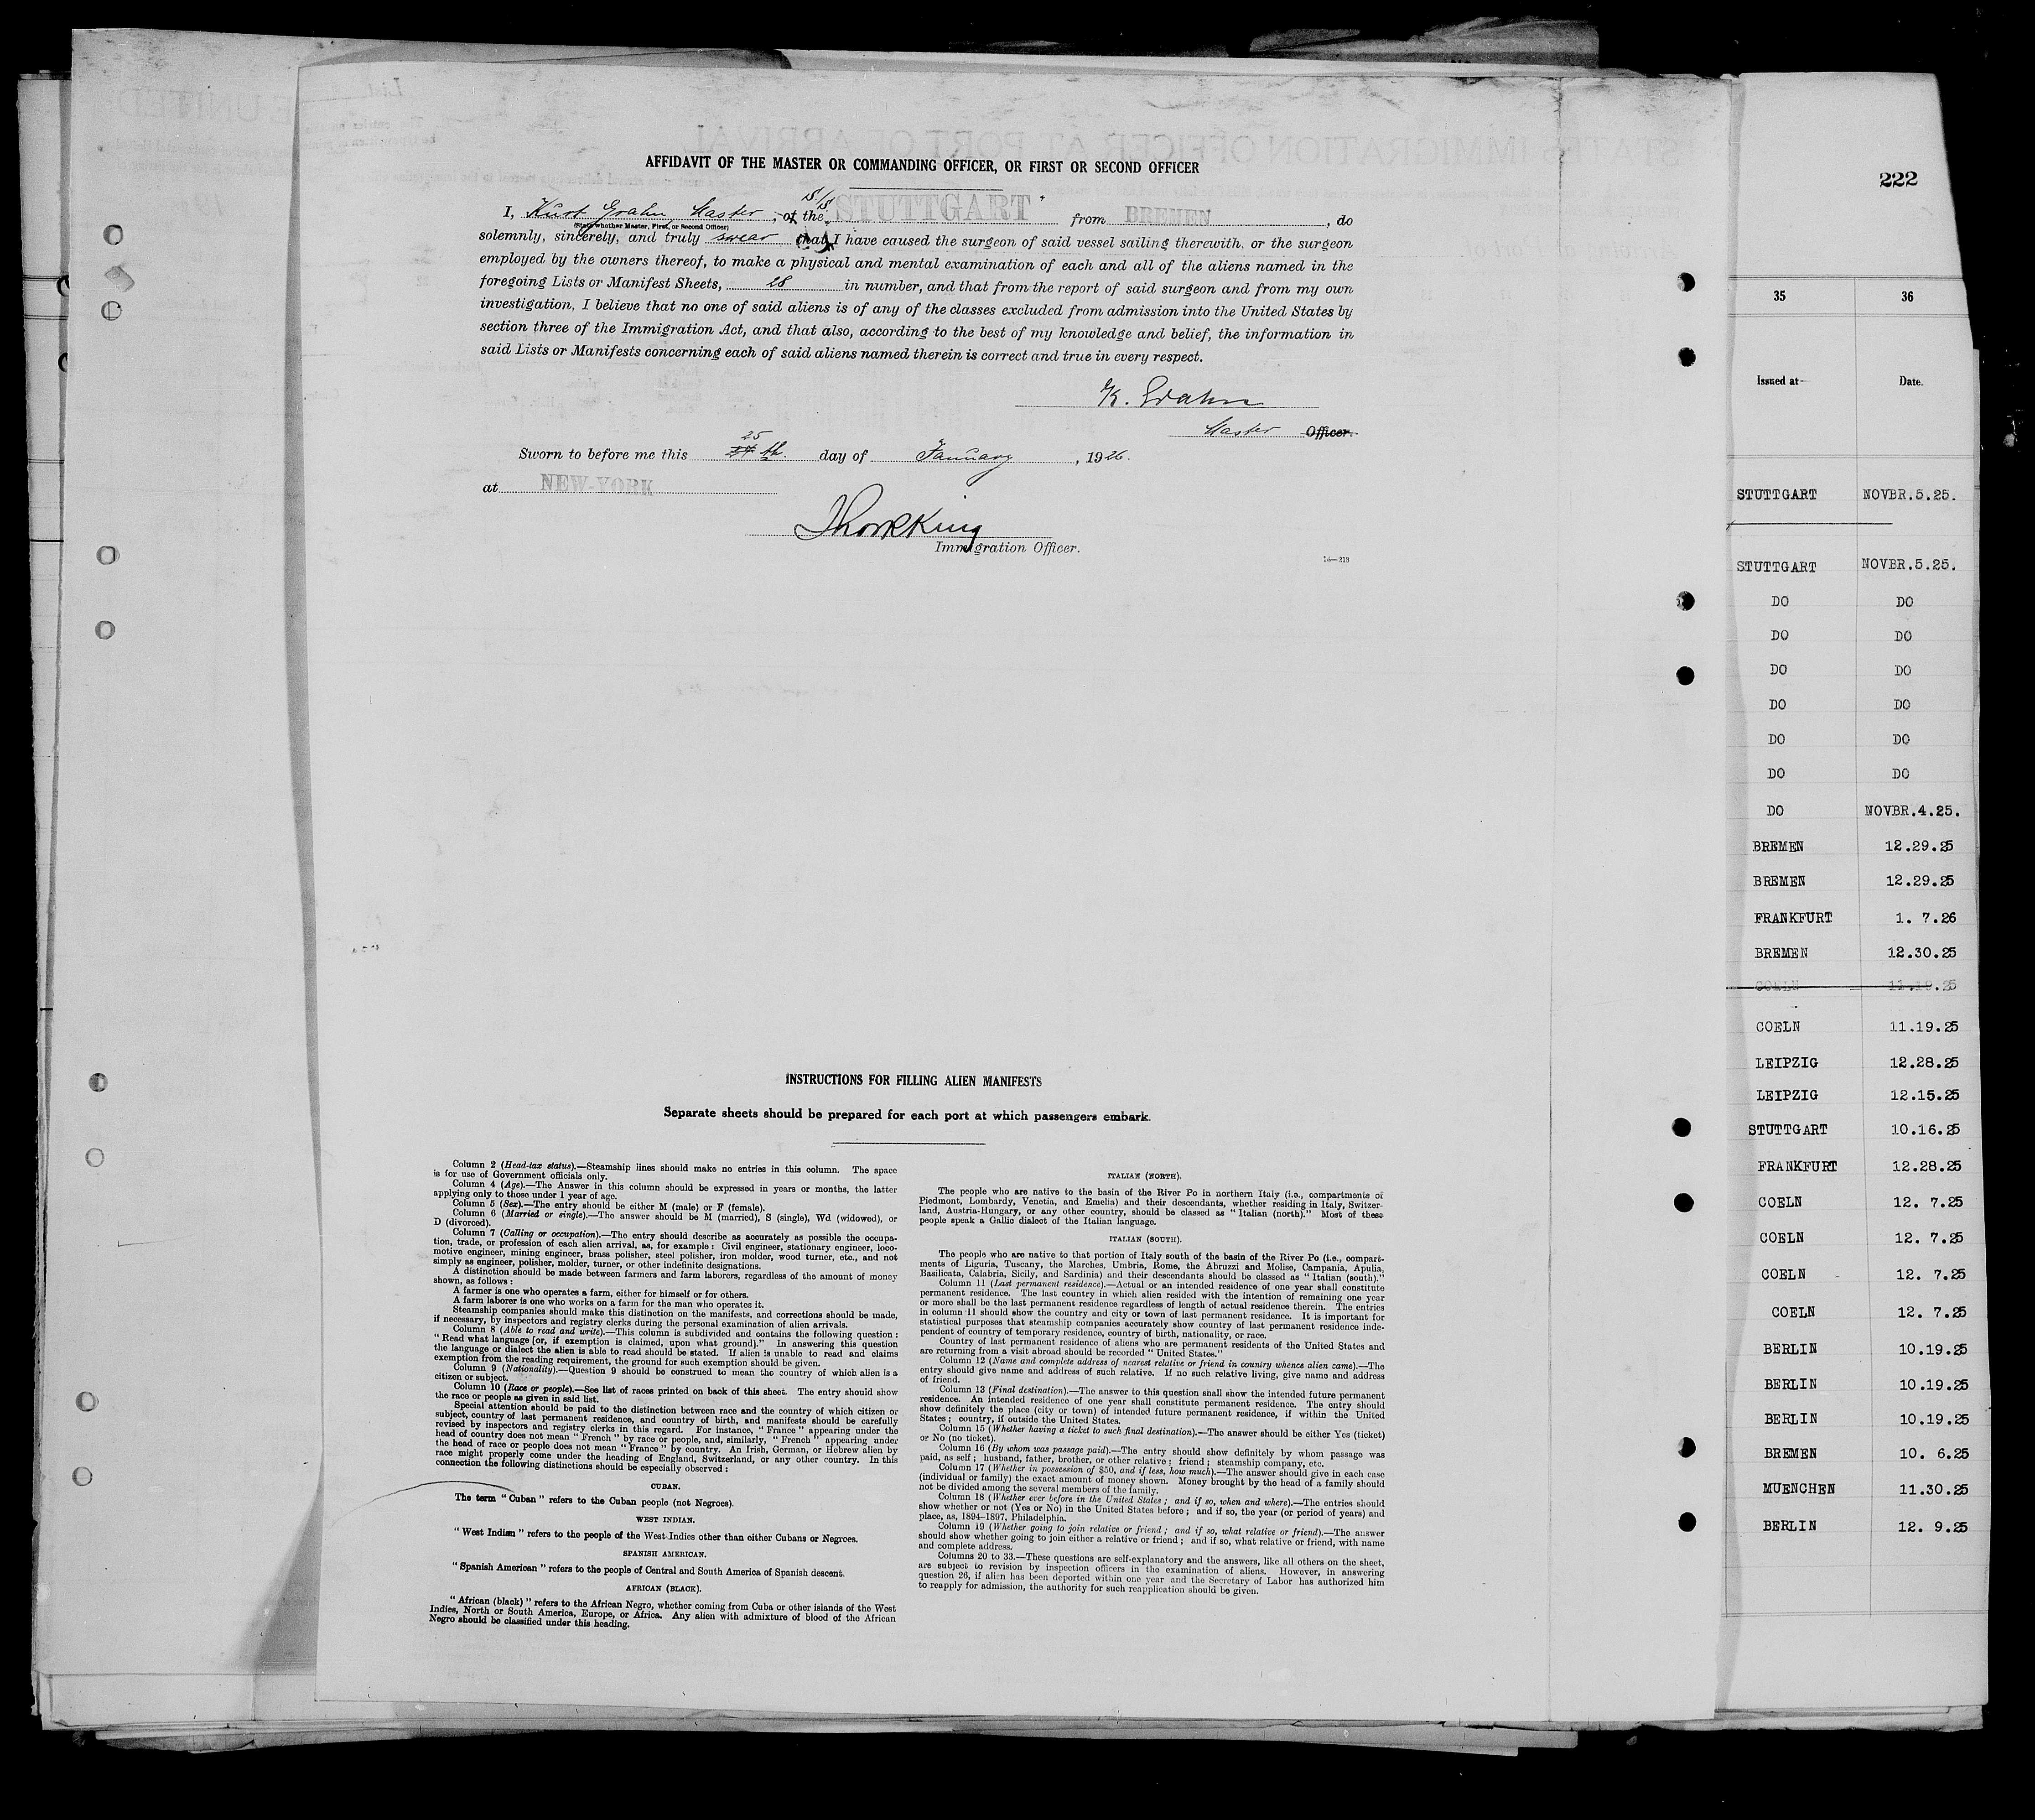 AFFIDAVIT OF THE MASTER OR COMMANDING OFFICER, OR FIRST OR SECOND OFFICER
I, Kurt Grahn Master, of the S/S "STUTTGART" from BREMEN, do
(State whether Master, First, or Second Officer)
solemnly, sincerely, and truly swear that I have caused the surgeon of said vessel sailing therewith, or the surgeon
employed by the owners thereof, to make a physical and mental examination of each and all of the aliens named in the
foregoing Lists or Manifest Sheets, 28 in number, and that from the report of said surgeon and from my own
investigation, I believe that no one of said aliens is of any of the classes excluded from admission into the United States by
section three of the Immigration Act, and that also, according to the best of my knowledge and belief, the information in
said Lists or Manifests concerning each of said aliens named therein is correct and true in every respect.
K. Grahn
Master Officer.
Sworn to before me this 25 th. day of January, 1926.
at NEW-YORK
Immigration Officer.
INSTRUCTIONS FOR FILLING ALIEN MANIFESTS
Separate sheets should be prepared for each port at which passengers embark.
Column 2 (Head-tax status).—Steamship lines should make no entries in this column. The space
is for use of Government officials only.
Column 4 (Age).—The Answer in this column should be expressed in years or months, the latter
applying only to those under 1 year of age.
Column 5 (Sex).—The entry should be either M (male) or F (female).
Column 6 (Married or single).—The answer should be M (married), S (single), Wd (widowed), or
D (divorced).
Column 7 (Calling or occupation).—The entry should describe as accurately as possible the occupa-
tion, trade, or profession of each alien arrival, as, for example: Civil engineer, stationary engineer, loco-
motive engineer, mining engineer, brass polisher, steel polisher, iron molder, wood turner, etc., and not
simply as engineer, polisher, molder, turner, or other indefinite designations.
A distinction should be made between farmers and farm laborers, regardless of the amount of money
shown, as follows:
A farmer is one who operates a farm, either for himself or for others.
A farm laborer is one who works on a farm for the man who operates it.
Steamship companies should make this distinction on the manifests, and corrections should be made,
if necessary, by inspectors and registry clerks during the personal examination of alien arrivals.
Column 8 (Able to read and write).—This column is subdivided and contains the following question:
"Read what language [or, if exemption is claimed, upon what ground]." In answering this question
the language or dialect the alien is able to read should be stated. If alien is unable to read and claims
exemption from the reading requirement, the ground for such exemption should be given.
Column 9 (Nationality).—Question 9 should be construed to mean the country of which alien is a
citizen or subject.
Column 10 (Race or people).—See list of races printed on back of this sheet. The entry should show
the race or people as given in said list.
Special attention should be paid to the distinction between race and the country of which citizen or
subject, country of last permanent residence, and country of birth, and manifests should be carefully
revised by inspectors and registry clerks in this regard. For instance, "France" appearing under the
head of country does not mean "French" by race or people, and, similarly, "French" appearing under
the head of race or people does not mean "France" by country. An Irish, German, or Hebrew alien by
race might properly come under the heading of England, Switzerland, or any other country. In this
connection the following distinctions should be especially observed:
CUBAN.
The term "Cuban" refers to the Cuban people (not Negroes).
WEST INDIAN.
"West Indian" refers to the people of the West Indies other than either Cubans or Negroes.
SPANISH AMERICAN.
"Spanish American" refers to the people of Central and South America of Spanish descent.
AFRICAN (BLACK).
"African (black)" refers to the African Negro, whether coming from Cuba or other islands of the West
Indies, North or South America, Europe, or Africa. Any alien with admixture of blood of the African
Negro should be classified under this heading.
ITALIAN (NORTH).
The people who are native to the basin of the River Po in northern Italy (i.e., compartments of
Piedmont, Lombardy, Venetia, and Emelia) and their descendants, whether residing in Italy, Switzer-
land, Austria-Hungary, or any other country, should be classed as "Italian (north)." Most of these
people speak a Gallic dialect of the Italian language.
ITALIAN (SOUTH).
The people who are native to that portion of Italy south of the basin of the River Po (i.e., compart-
ments of Liguria, Tuscany, the Marches, Umbria, Rome, the Abruzzi and Molise, Campania, Apulia,
Basilicata, Calabria, Sicily, and Sardinia) and their descendants should be classed as "Italian (south)."
Column 11 (Last permanent residence).—Actual or an intended residence of one year shall constitute
permanent residence. The last country in which alien resided with the intention of remaining one year
or more shall be the last permanent residence regardless of length of actual residence therein. The entries
in column 11 should show the country and city or town of last permanent residence. It is important for
statistical purposes that steamship companies accurately show country of last permanent residence inde-
pendent of country of temporary residence, country of birth, nationality, or race.
Country of last permanent residence of aliens who are permanent residents of the United States and
are returning from a visit abroad should be recorded "United States."
Column 12 (Name and complete address of nearest relative or friend in country whence alien came).—The
entry should give name and address of such relative. If no such relative living, give name and address
of friend.
Column 13 (Final destination).—The answer to this question shall show the intended future permanent
residence. An intended residence of one year shall constitute permanent residence. The entry should
show definitely the place (city or town) of intended future permanent residence, if within the United
States; country, if outside the United States.
Column 15 (Whether having a ticket to such final destination).—The answer should be either Yes (ticket)
or No (no ticket).
Column 16 (By whom was passage paid).—The entry should show definitely by whom passage was
paid, as self; husband, father, brother, or other relative; friend; steamship company, etc.
Column 17 (Whether in possession of $50, and if less, how much).—The answer should give in each case
(individual or family) the exact amount of money shown. Money brought by the head of a family should
not be divided among the several members of the family.
Column 18 (Whether ever before in the United States; and if so, when and where).—The entries should
show whether or not (Yes or No) in the United States before; and if so, the year (or period of years) and
place, as, 1894-1897, Philadelphia.
Column 19 (Whether going to join relative or friend; and if so, what relative or friend).—The answer
should show whether going to join either a relative or friend; and if so, what relative or friend, with name
and complete address.
Columns 20 to 33.—These questions are self-explanatory and the answers, like all others on the sheet,
are subject to revision by inspection officers in the examination of aliens. However, in answering
question 26, if alien has been deported within one year and the Secretary of Labor has authorized him
to reapply for admission, the authority for such reapplication should be given.
222
35 36
Issued at— Date.
STUTTGART NOVBR.5.25.
STUTTGART NOVBR.5.25.
DO DO
DO DO
DO DO
DO DO
DO DO
DO DO
DO NOVBR.4.25.
BREMEN 12.29.25
BREMEN 12.29.25
FRANKFURT 1. 7.26
BREMEN 12.30.25
COELN 11.19.25
COELN 11.19.25
LEIPZIG 12.28.25
LEIPZIG 12.15.25
STUTTGART 10.16.25
FRANKFURT 12.28.25
COELN 12. 7.25
COELN 12. 7.25
COELN 12. 7.25
COELN 12. 7.25
BERLIN 10.19.25
BERLIN 10.19.25
BERLIN 10.19.25
BREMEN 10. 6.25
MUENCHEN 11.30.25
BERLIN 12. 9.25